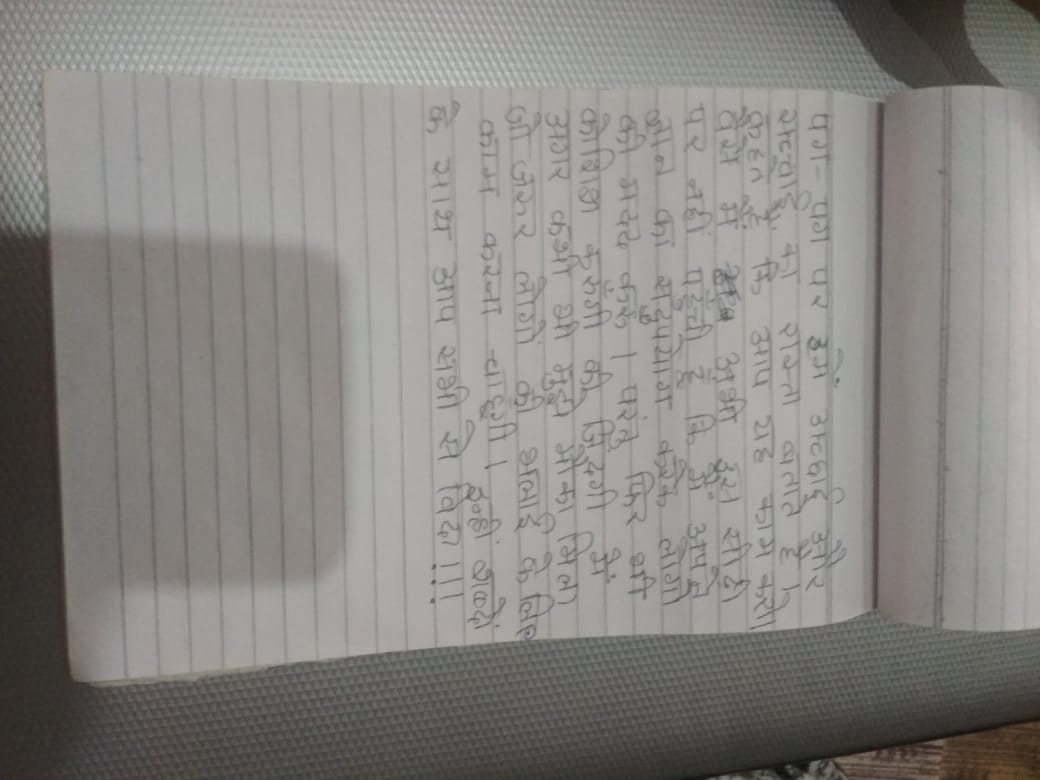 पग-पग पर हमें अच्छाई और
सच्चाई का रास्ता बताते है।
कहते है कि आप यह काम करो।
वैसे में अभी उस सीढी
पर नहीं पहुंची हूं कि मैं अपने
ज्ञान का सदुपयोग करके लोगों
की मदद करूं। परंतु फिर भी
कोशिश करूंगी की जिंदगी में
अगर कभी भी मुझे मौका मिला
तो जरूर लोगों की भलाई के लिए
काम करना चाहूंगी। इन्हीं शब्दों
के साथ आप सभी से विदा!!!